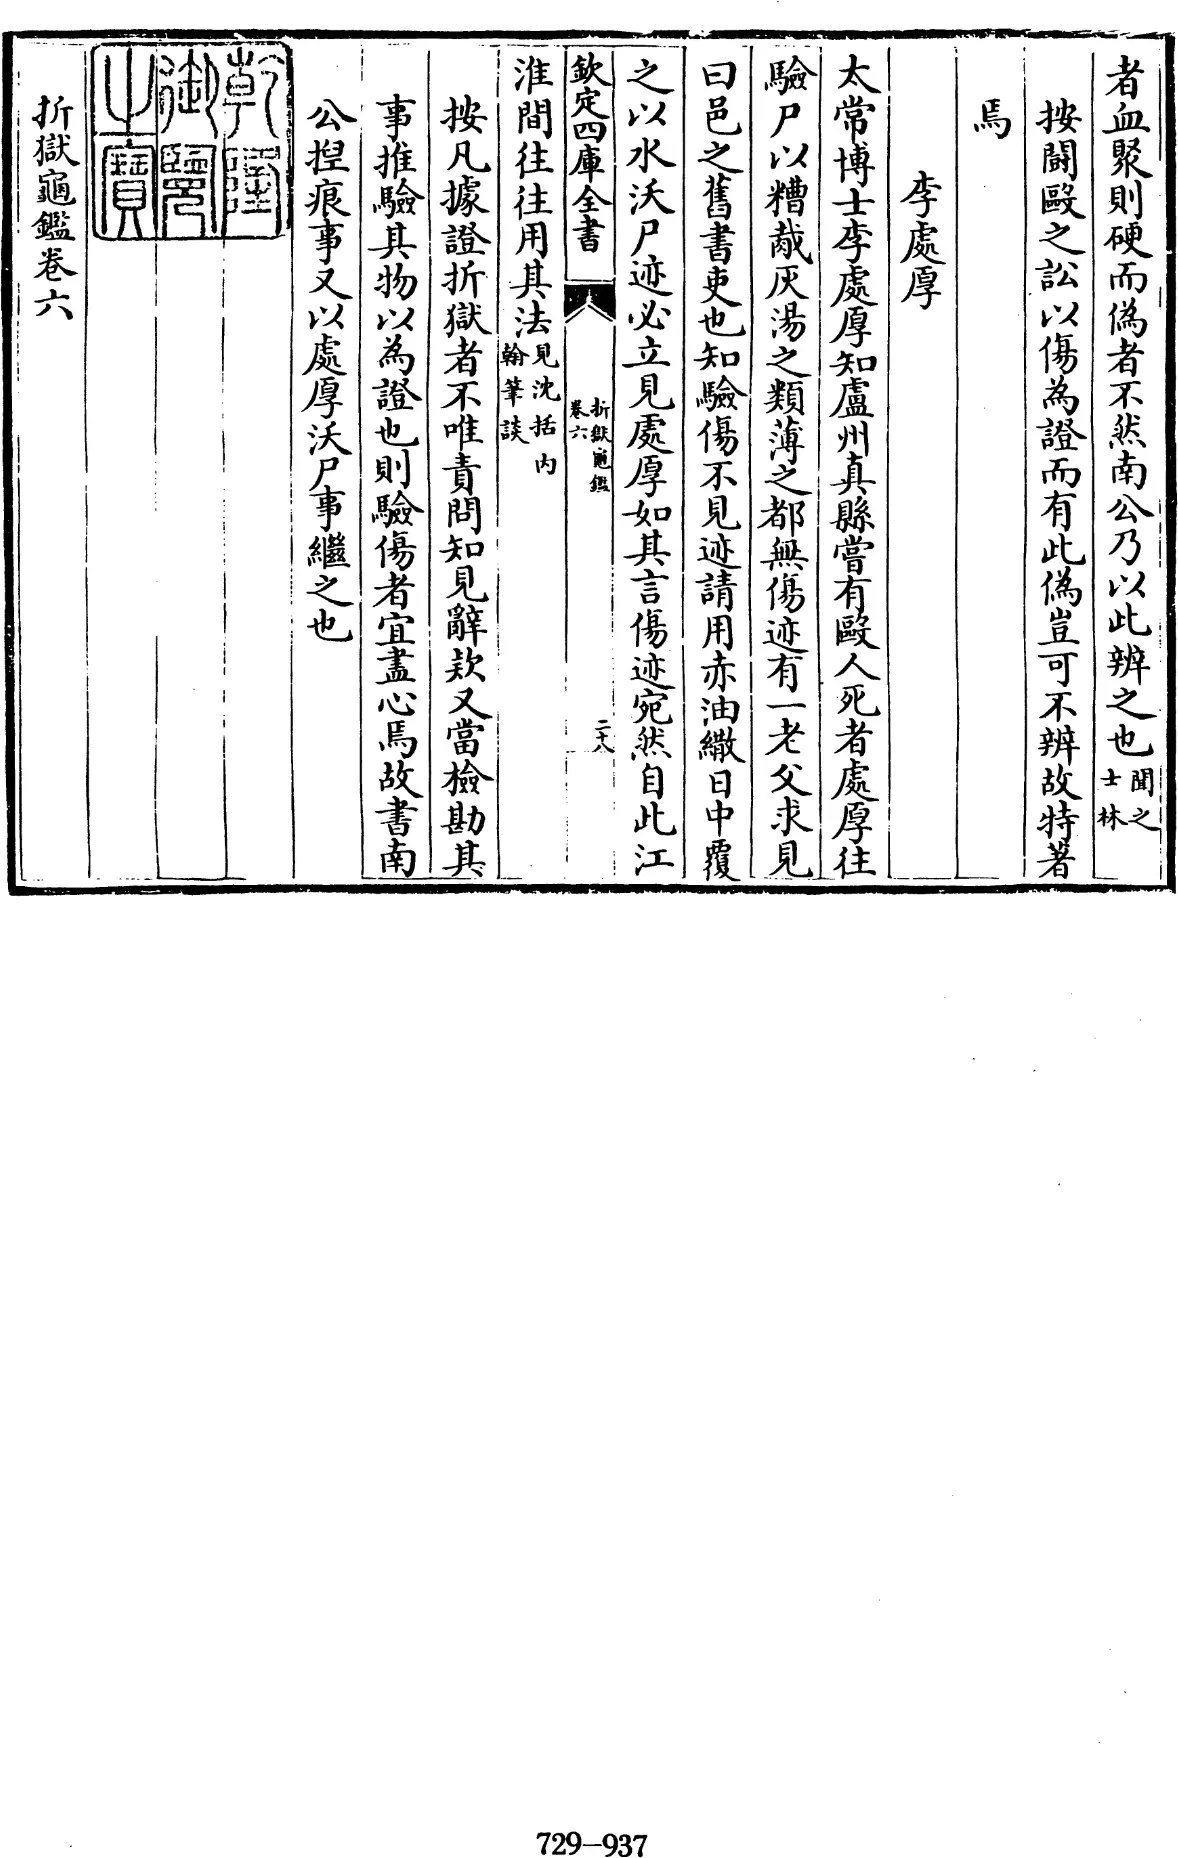 者血聚則硬而偽者不然南公乃以此辨之也聞之士林
按鬬毆之訟以傷為證而有此偽豈可不辨故特著
焉
李處厚
太常博士李處厚知盧州真縣嘗有毆人死者處厚往
驗尸以糟胾灰湯之類薄之都無傷迹有一老父求見
曰邑之舊書吏也知驗傷不見迹請用赤油繖日中覆
之以水沃尸迹必立見處厚如其言傷迹宛然自此江
欽定四庫全書
折獄龜鑑
卷六
二十八
淮間往往用其法見沈括内翰筆談
按凡據證折獄者不唯責問知見辭款又當檢勘其
事推驗其物以為證也則驗傷者宜盡心焉故書南
公揑痕事又以處厚沃尸事繼之也
乾隆御覽之寶
折獄龜鑑卷六
729-937